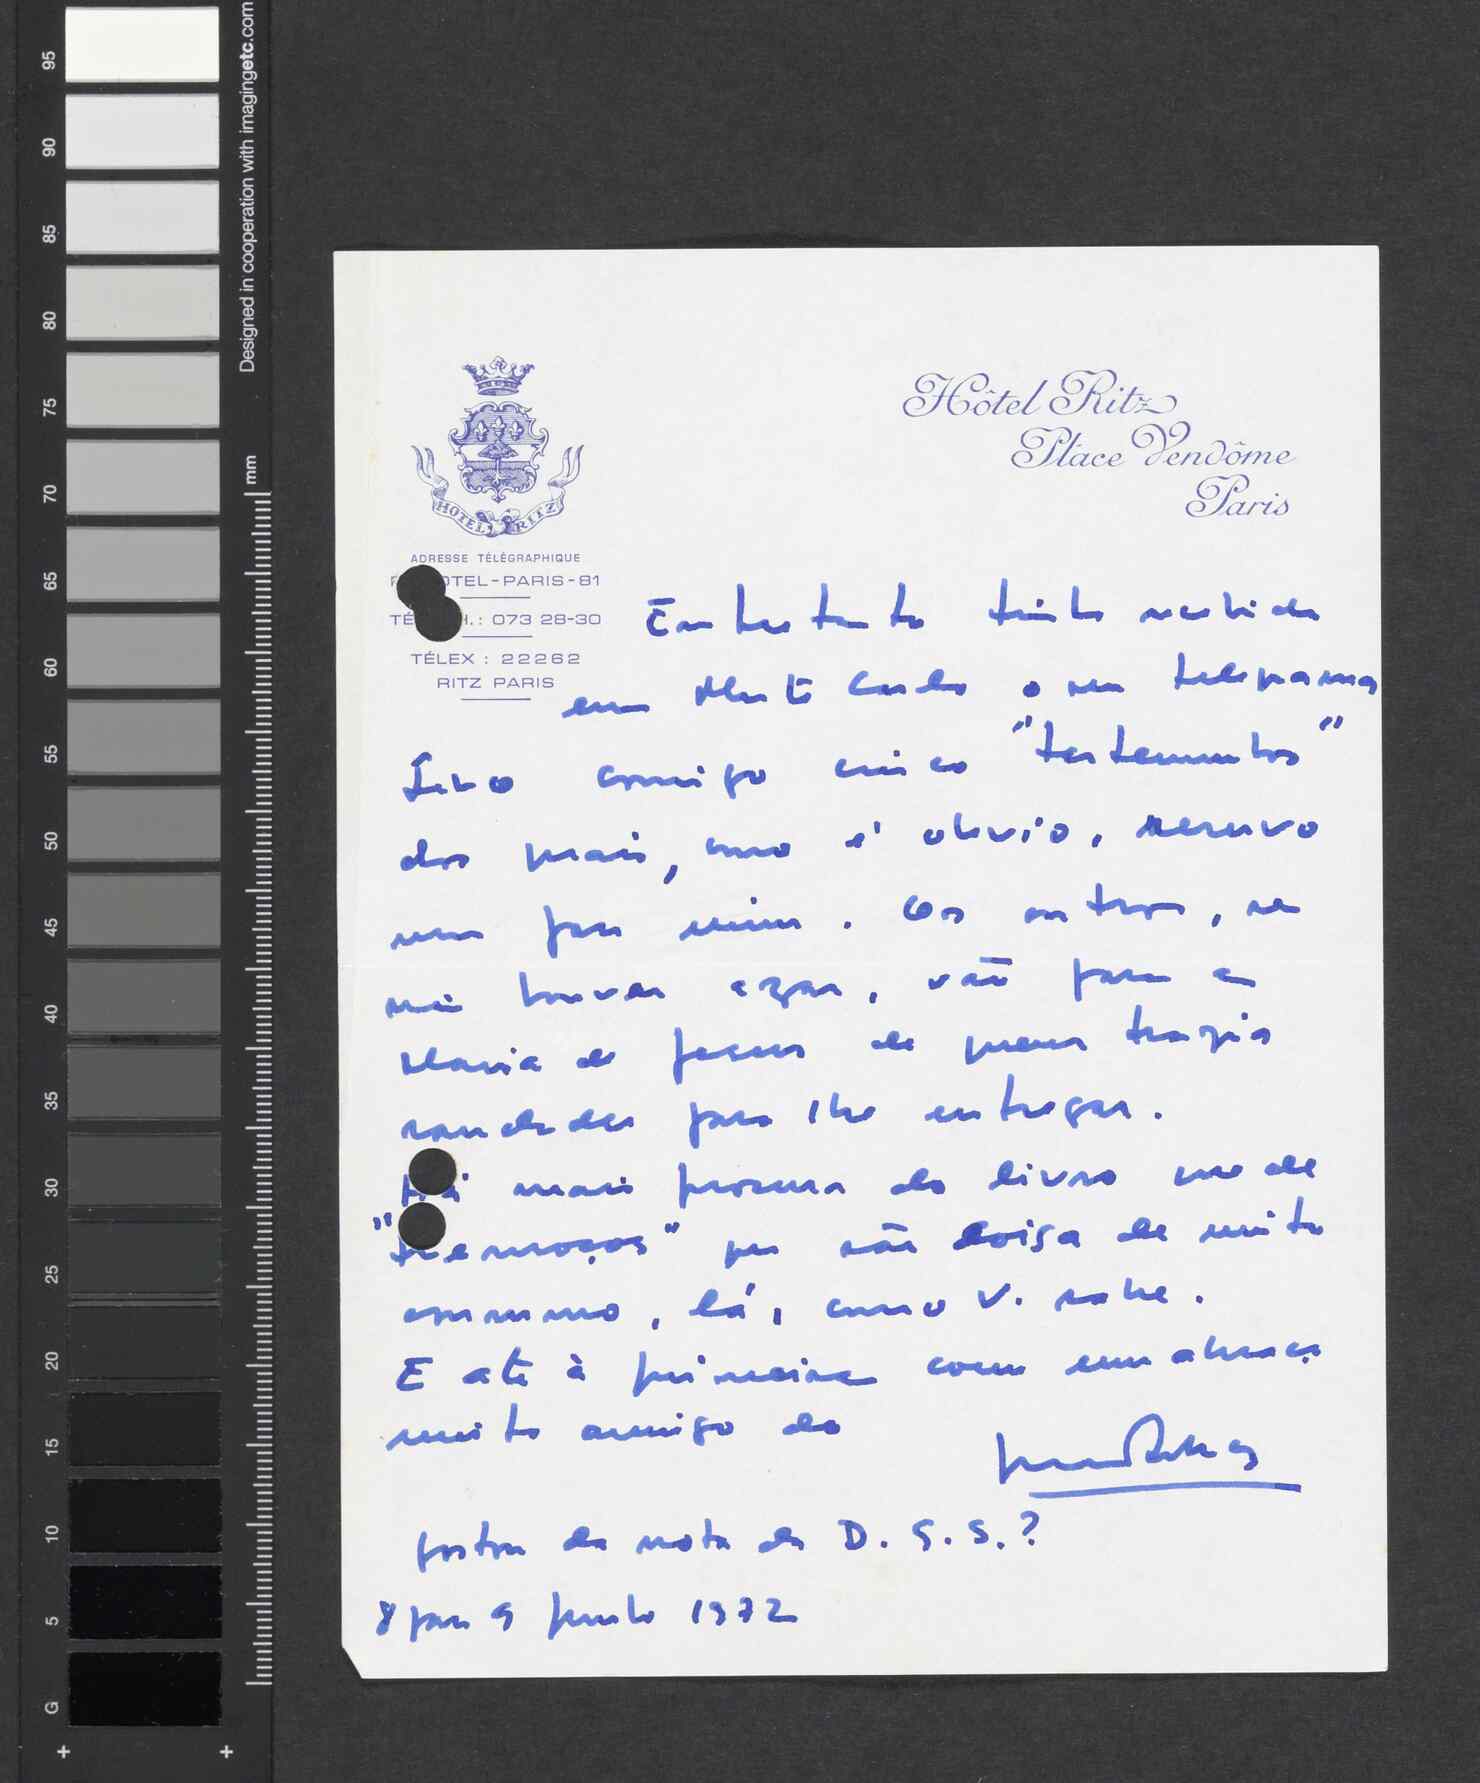 Hôtel Ritz
Place Vendôme
Paris
HOTEL RITZ
ADRESSE TÉLÉGRAPHIQUE
OTEL-PARIS-81
TÉ H.: 073 28-30
TÉLEX : 22262
RITZ PARIS
Entretanto tinha recebido
em Monte Carlo o seu telegrama
Levo comigo cinco "testemunhos"
dos quais, como é obvio, reservo
um para mim. Os outros, se
não houver azar, vão para a
Maria de Jesus de quem trazia
saudades para lhe entregar.
Há mais procura do livro que de
"tremoços" que são coisa de muito
consumo, lá, como V. sabe.
E até à primeira com um abraço
muito amigo do
gostou da nota da D. G. S.?
8 para 9 Junho 1972
95
90
85
80
75
70
65
60
55
50
45
40
35
30
25
20
15
10
5
G
mm
Designed in cooperation with imagingetc.com